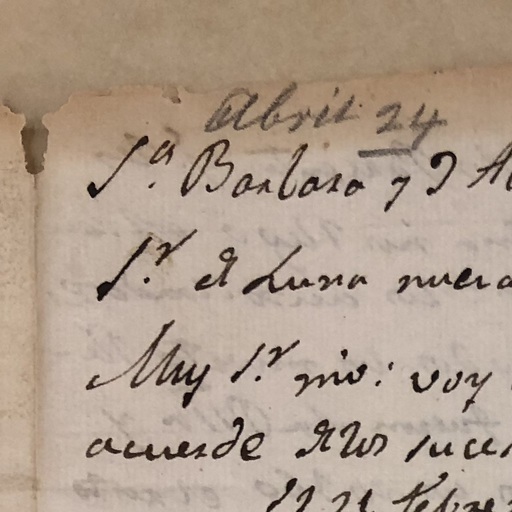 Abril 24
Sª. Barbara y 9 Ab
S.r de Luna nuera
Muy S.r mio: voy
acuerde de los suces
el 21 Febre